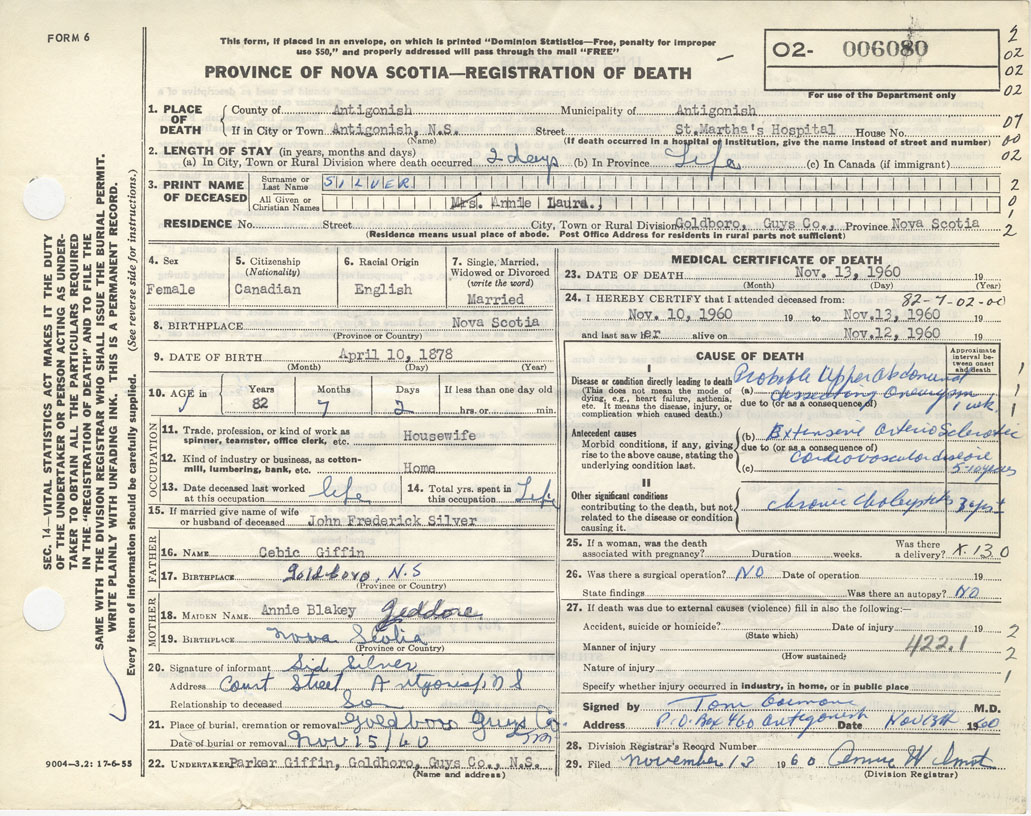 FORM 6
This form, if placed in an envelope, on which is printed "Dominion Statistics—Free, penalty for improper
use $50," and properly addressed will pass through the mail "FREE"
PROVINCE OF NOVA SCOTIA—REGISTRATION OF DEATH
O2- 006080
For use of the Department only
2
02
02
02
07
00
02
2
0
1
2
SEC. 14—VITAL STATISTICS ACT MAKES IT THE DUTY
OF THE UNDERTAKER OR PERSON ACTING AS UNDER-
TAKER TO OBTAIN ALL THE PARTICULARS REQUIRED
IN THE "REGISTRATION OF DEATH" AND TO FILE THE
SAME WITH THE DIVISION REGISTRAR WHO SHALL ISSUE THE BURIAL PERMIT.
WRITE PLAINLY WITH UNFADING INK. THIS IS A PERMANENT RECORD.
Every item of information should be carefully supplied. (See reverse side for instructions.)
1. PLACE OF DEATH County of Antigonish Municipality of Antigonish
If in City or Town Antigonish, N.S. Street St.Martha's Hospital House No.
(Name) (If death occurred in a hospital or institution, give the name instead of street and number)
2. LENGTH OF STAY (in years, months and days)
(a) In City, Town or Rural Division where death occurred 2 days (b) In Province Life (c) In Canada (if immigrant)
3. PRINT NAME OF DECEASED Surname or Last Name SILVER
All Given or Christian Names Mrs. Annie Laura,
RESIDENCE No. Street City, Town or Rural Division Goldboro, Guys Co., Province Nova Scotia
(Residence means usual place of abode. Post Office Address for residents in rural parts not sufficient)
4. Sex
Female
5. Citizenship
(Nationality)
Canadian
6. Racial Origin
English
7. Single, Married,
Widowed or Divorced
(write the word)
Married
8. BIRTHPLACE Nova Scotia
(Province or Country)
9. DATE OF BIRTH April 10, 1878
(Month) (Day) (Year)
10. AGE in Years Months Days If less than one day old
82 7 2 hrs. or min.
OCCUPATION
11. Trade, profession, or kind of work as
spinner, teamster, office clerk, etc. Housewife
12. Kind of industry or business, as cotton-
mill, lumbering, bank, etc. Home
13. Date deceased last worked
at this occupation life
14. Total yrs. spent in
this occupation Life
15. If married give name of wife
or husband of deceased John Frederick Silver
FATHER
16. NAME Cebic Giffin
17. BIRTHPLACE Goldboro, N.S
(Province or Country)
MOTHER
18. MAIDEN NAME Annie Blakey Jeddore
19. BIRTHPLACE Nova Scotia
(Province or Country)
20. Signature of informant Sid Silver
Address Court Street Antigonish, N S
Relationship to deceased Son
21. Place of burial, cremation or removal Goldboro Guys Co.
Date of burial or removal Nov 15/60
22. UNDERTAKER Parker Giffin, Goldboro, Guys Co., N.S.
(Name and address)
9004—3.2: 17-6-55
MEDICAL CERTIFICATE OF DEATH
23. DATE OF DEATH Nov. 13, 1960 19
(Month) (Day) (Year)
24. I HEREBY CERTIFY that I attended deceased from: 82-7-02-00
Nov. 10, 1960 19 to Nov.13, 1960
and last saw her alive on Nov.12, 1960 19
CAUSE OF DEATH
Approximate
interval be-
tween onset
and death
I
Disease or condition directly leading to death
(This does not mean the mode of
dying, e.g., heart failure, asthenia,
etc. It means the disease, injury, or
complication which caused death.)
(a) Probable Upper Abdominal
dissecting aneurysm
due to (or as a consequence of) 1 wk.
Antecedent causes
Morbid conditions, if any, giving
rise to the above cause, stating the
underlying condition last.
(b) Extensive Arterio Sclerotic
due to (or as a consequence of)
Cardiovascular disease
(c) 5-10 years
II
Other significant conditions
contributing to the death, but not
related to the disease or condition
causing it.
chronic 3 yrs±
1
1
1
25. If a woman, was the death
associated with pregnancy? Duration weeks. Was there
a delivery? X 13 0
26. Was there a surgical operation? NO Date of operation 19
State findings Was there an autopsy? NO
27. If death was due to external causes (violence) fill in also the following:—
Accident, suicide or homicide? Date of injury 19 2
(State which)
Manner of injury 422.1 2
(How sustained)
Nature of injury 1
Specify whether injury occurred in industry, in home, or in public place
Signed by Tom Gorman M.D.
Address P.O. Box 460 Antigonish Date Nov 13th 1960
28. Division Registrar's Record Number
29. Filed November 13 1960
(Division Registrar)